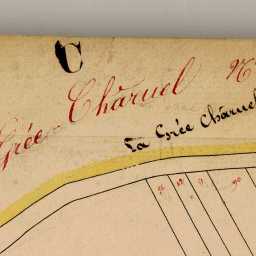 C
Grée Charuel N
La Grée Charuel